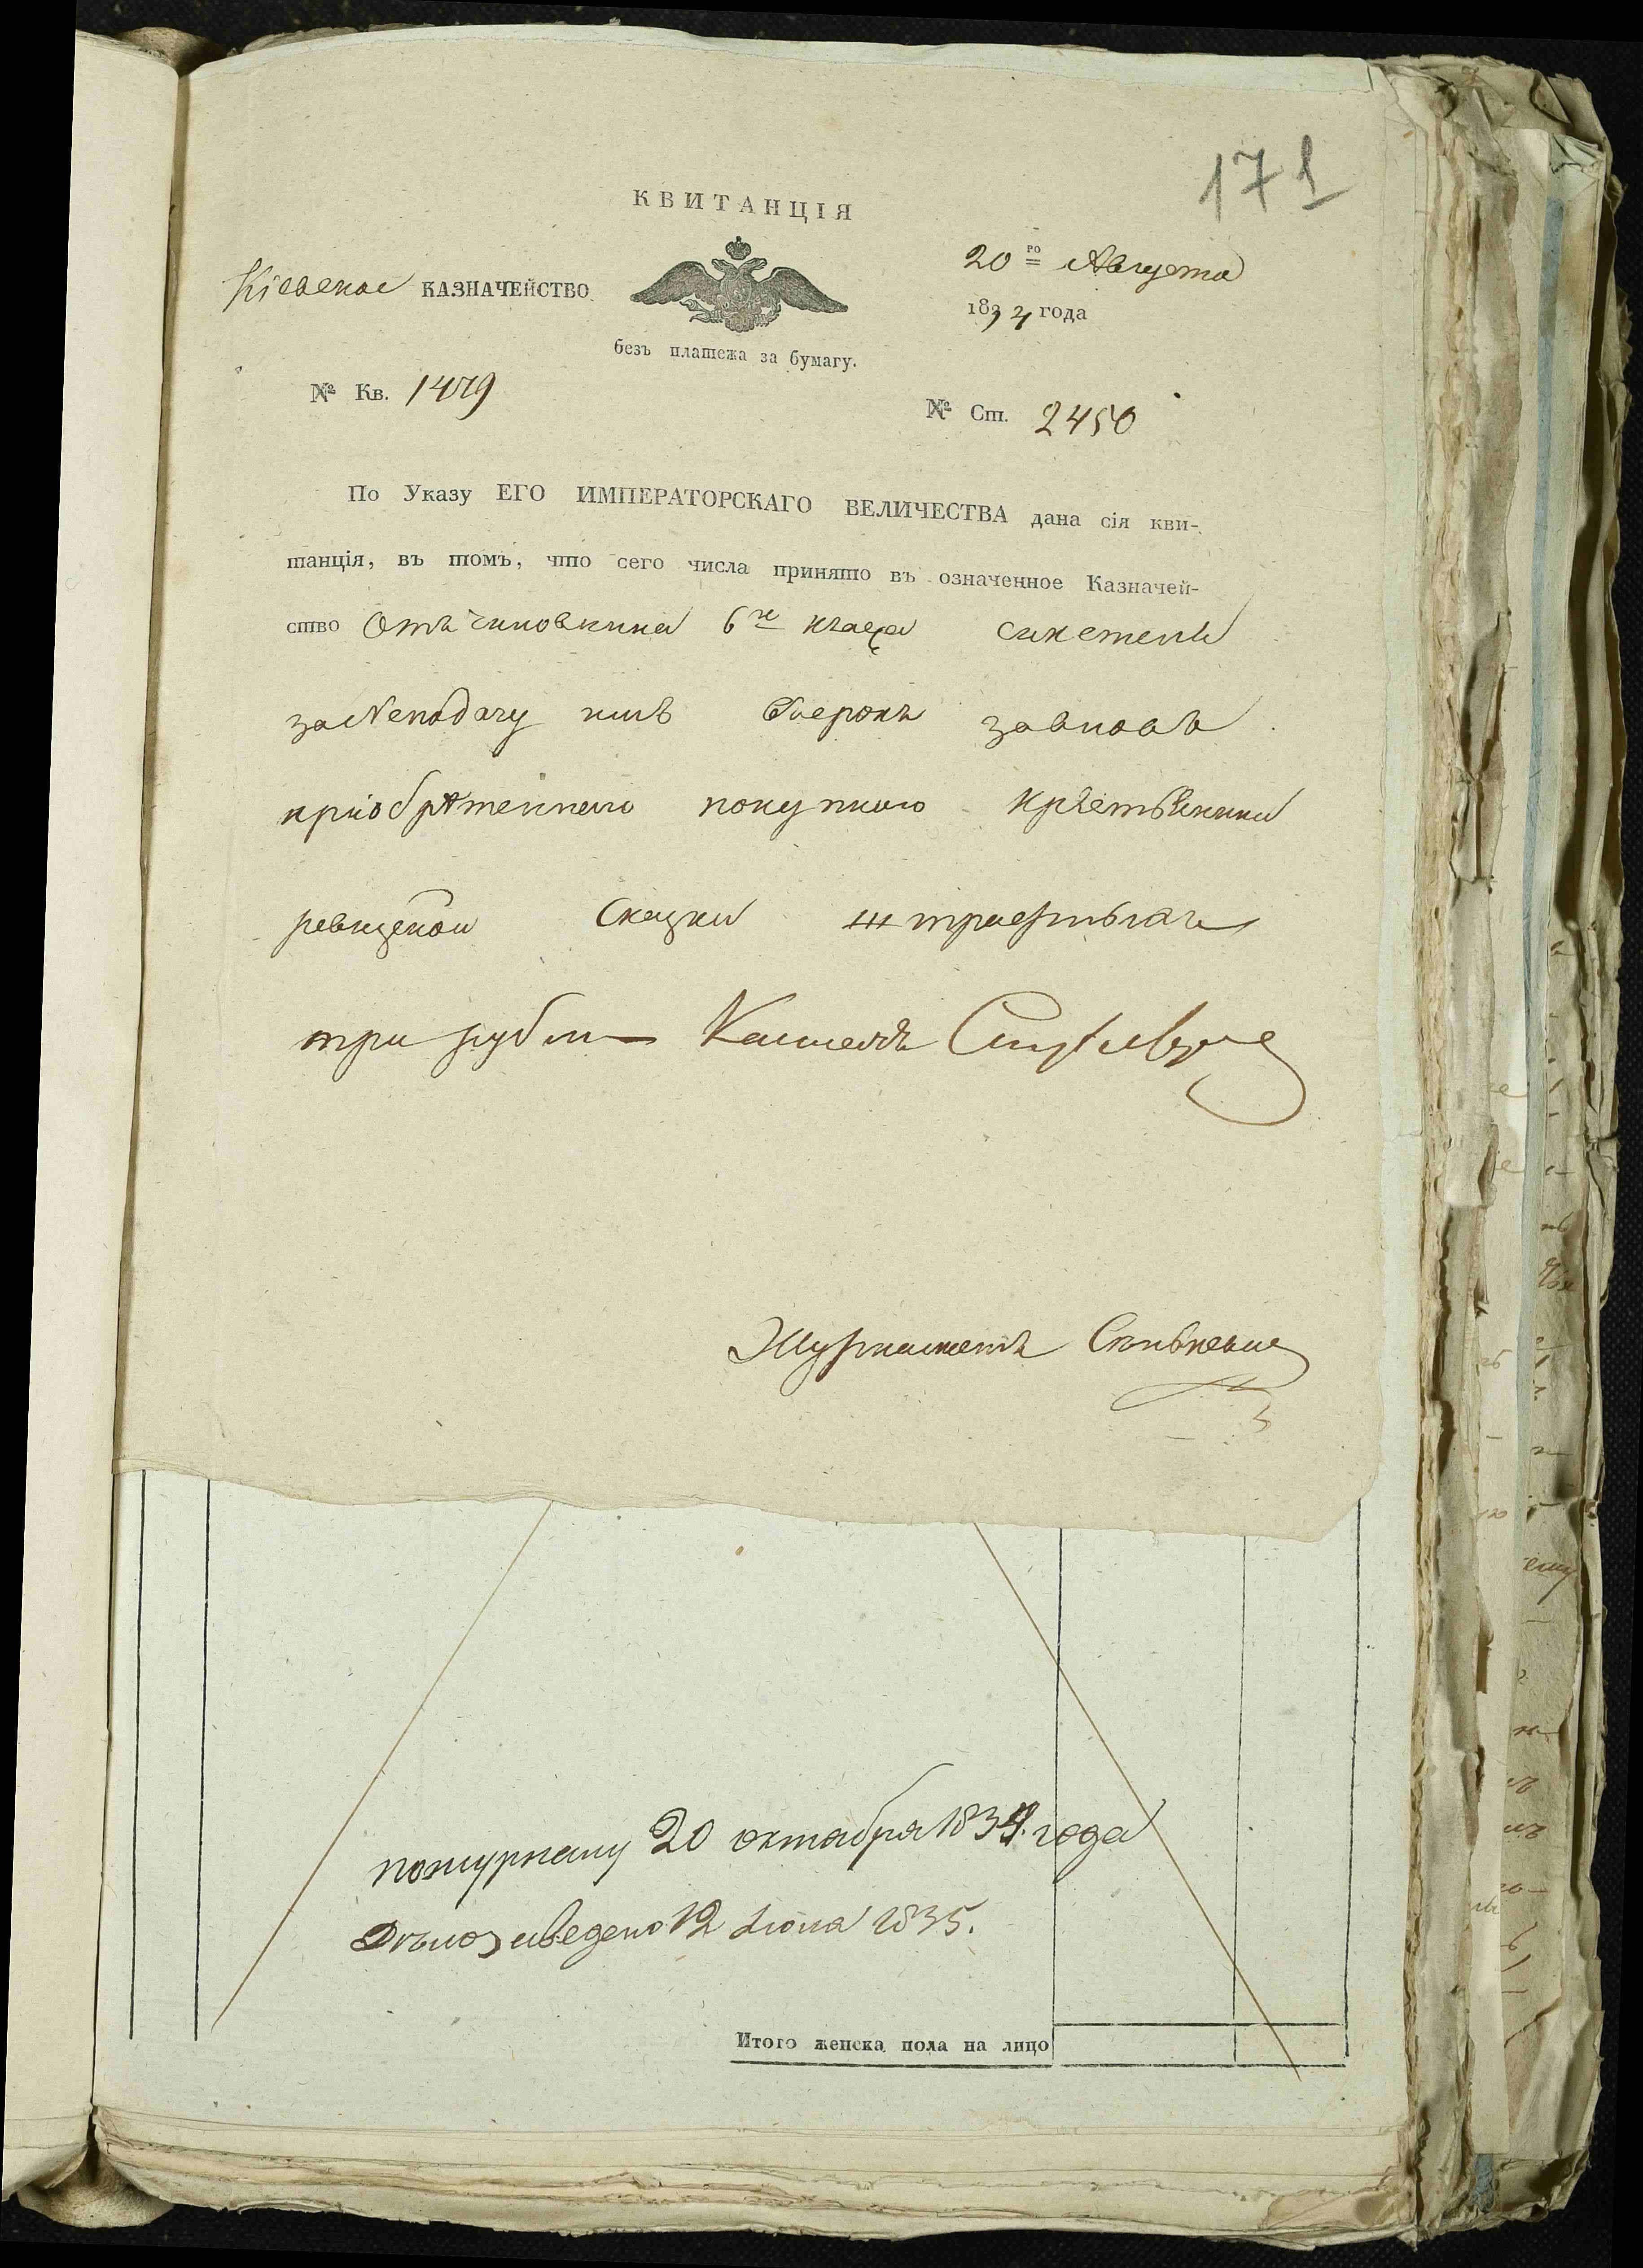 171
КВИТАНЦІЯ
Кіевское КАЗНАЧЕЙСТВО
20го Августа
1834 года
безъ платежа за бумагу.
№ Кв. 1479
№ Ст. 2450
По Указу ЕГО ИМПЕРАТОРСКАГО ВЕЛИЧЕСТВА дана сія кви-
танція, въ томъ, что сего числа принято въ означенное Казначей-
ство Отъ чиновника 6го класа
за Неподачу имъ въ срокъ
пріобрѣтеннаго покупкою
ревизской Сказки штрафныхъ
три рубли
Журналистъ
по журналу 20 октября 1834. года
12 Іюня 1835.
Итого женска пола на лицо